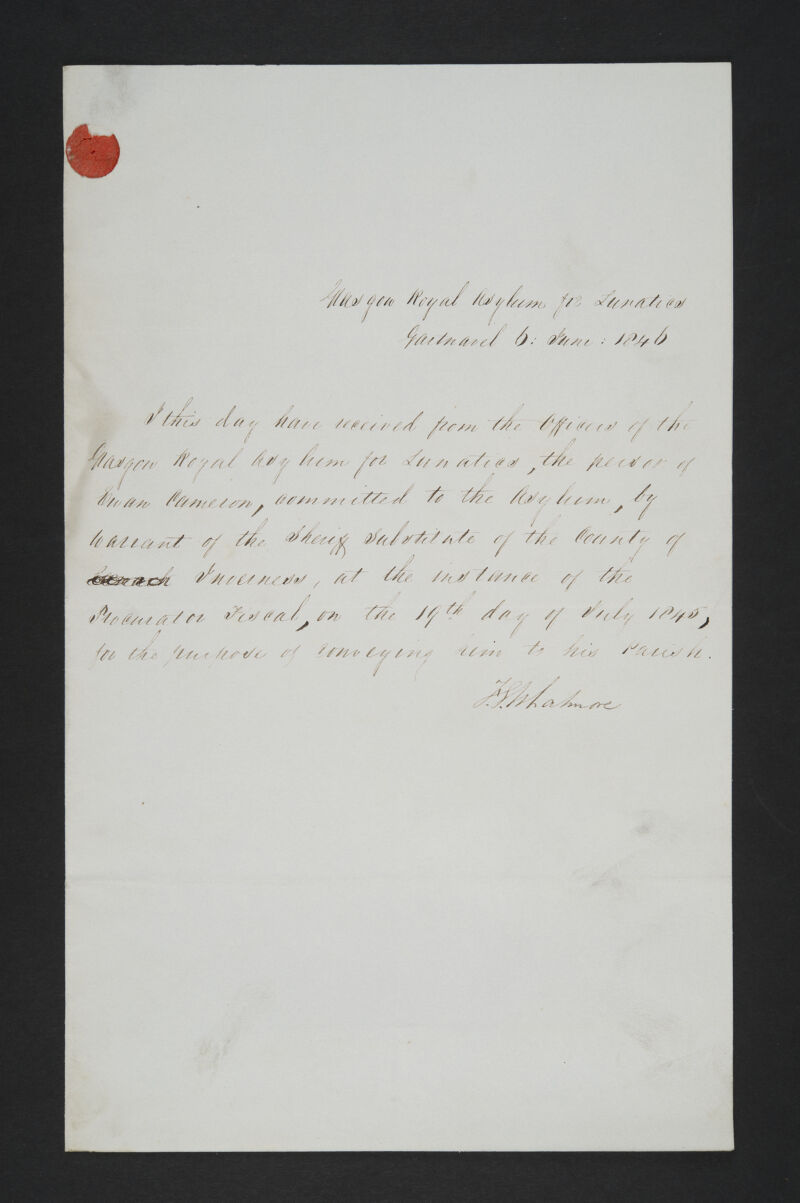 Glasgow Royal Asylum for Lunatics
Gartnavel 6: June: 1846
I this day have received from the Officers of the
Glasgow Royal Asylum for Lunatics, the person of
Ewan Cameron, committed to the Asylum, by
Warrant of the Sheriff Substitute of the County of
Inverness, at the instance of the
Procurator Fiscal, on the 19th day of July 1845,
for the purpose of conveying him to his Parish.